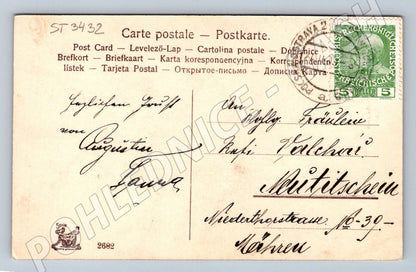 ST 3432
Carte postale – Postkarte.
Post Card – Levelező-Lap – Cartolina postale – Dopisnice
Brefkort – Briefkaart – Karta korespondencyjna – Korrespondenz
lístek – Tarjeta Postal – Открытое-письмо – Дописна Карта
OSTRAVA 2
5 5
Herzlichen Gruß
von
Augustin
An
Fräulein
Valchař
Neutitschein
Niederthorstrasse No 39
Mähren
2682
POHLEDNICE